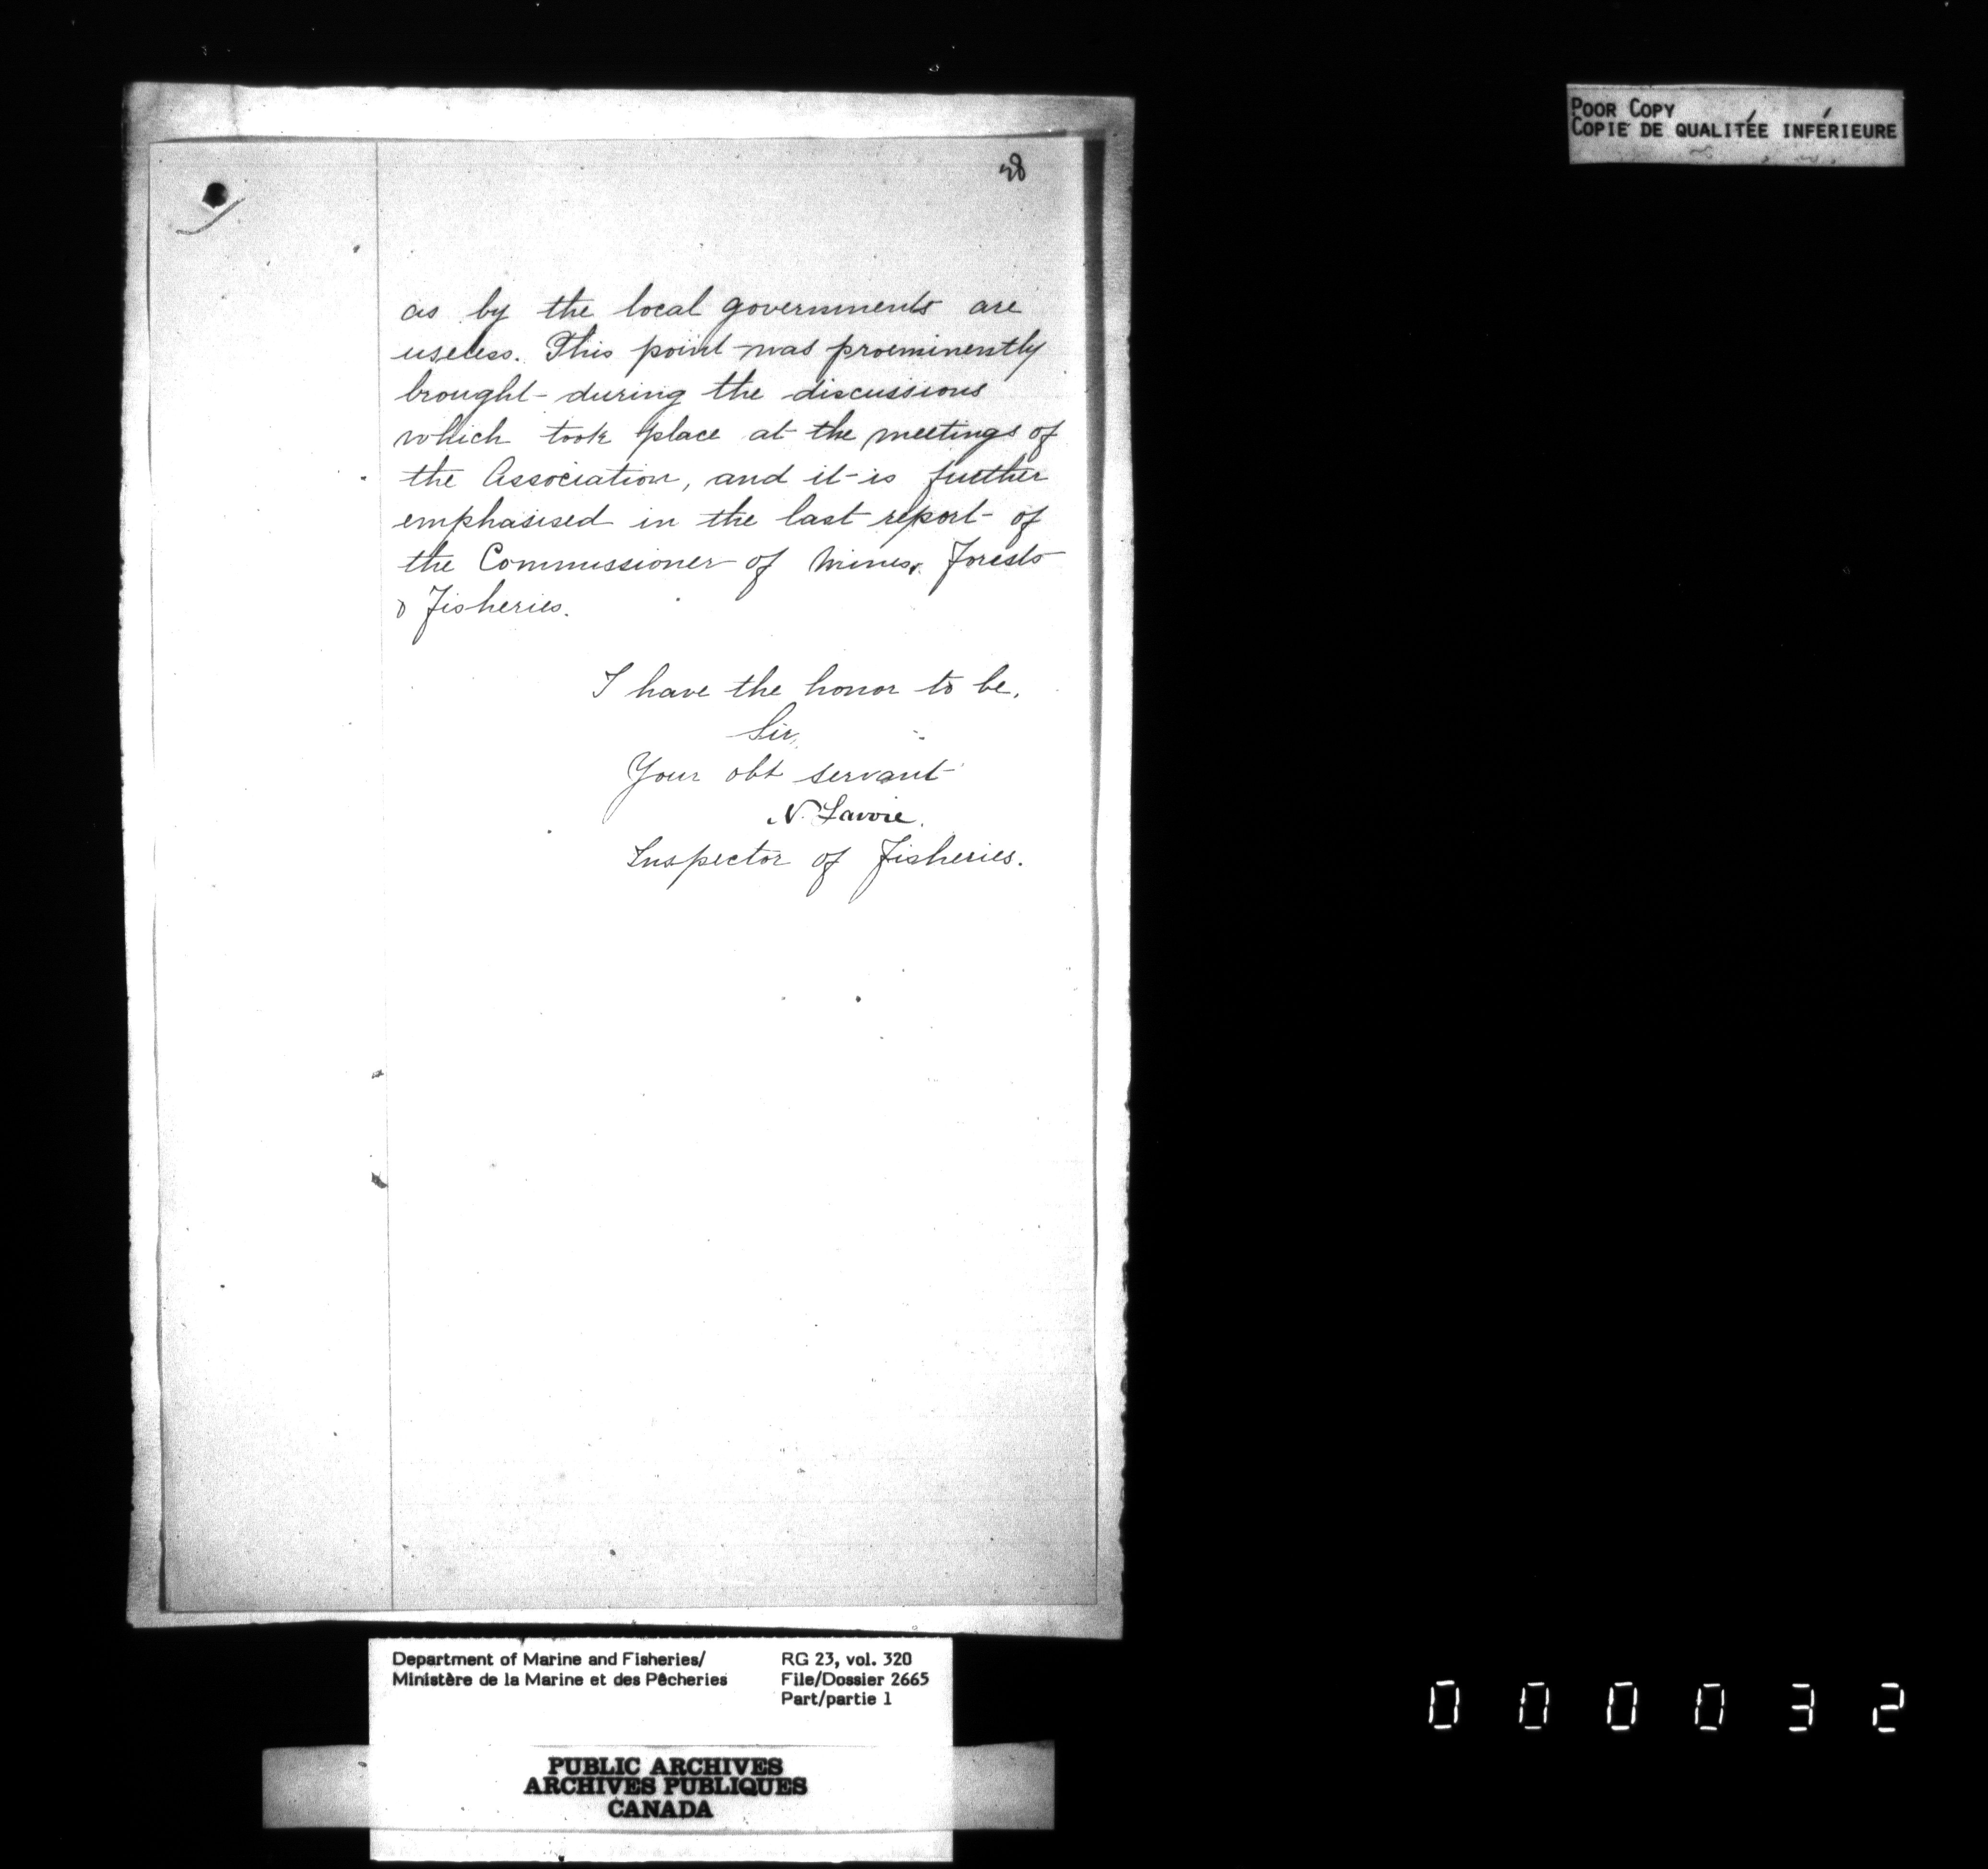 POOR COPY
COPIE DE QUALITÉE INFÉRIEURE
28
as by the local governments are
useless. This point was proeminently
brought during the discussions
which took place at the meetings of
the Association, and it is further
emphasised in the last report of
the Commissioner of Mines, Forests
& Fisheries.
I have the honor to be,
Sir,
Your obt servant
N. Lavoie.
Inspector of Fisheries.
Department of Marine and Fisheries/
Ministère de la Marine et des Pêcheries
RG 23, vol. 320
File/Dossier 2665
Part/partie 1
PUBLIC ARCHIVES
ARCHIVES PUBLIQUES
CANADA
000032